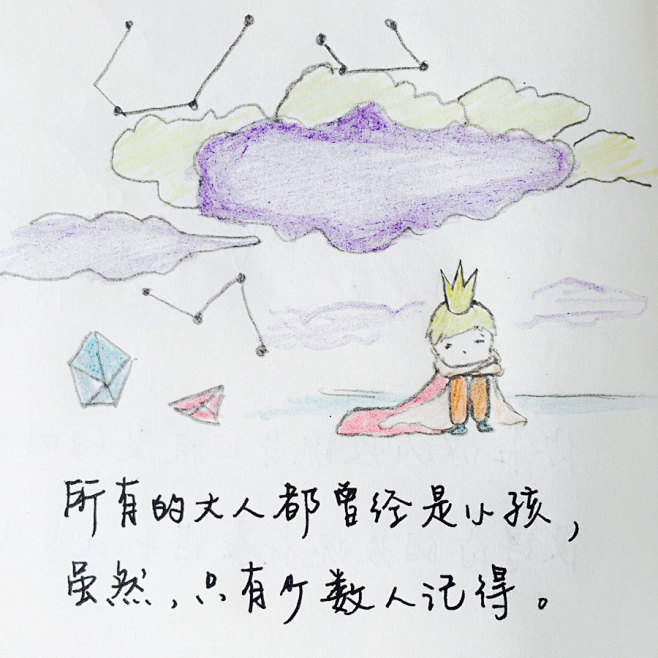 所有的大人都曾经是小孩，
虽然，只有少数人记得。